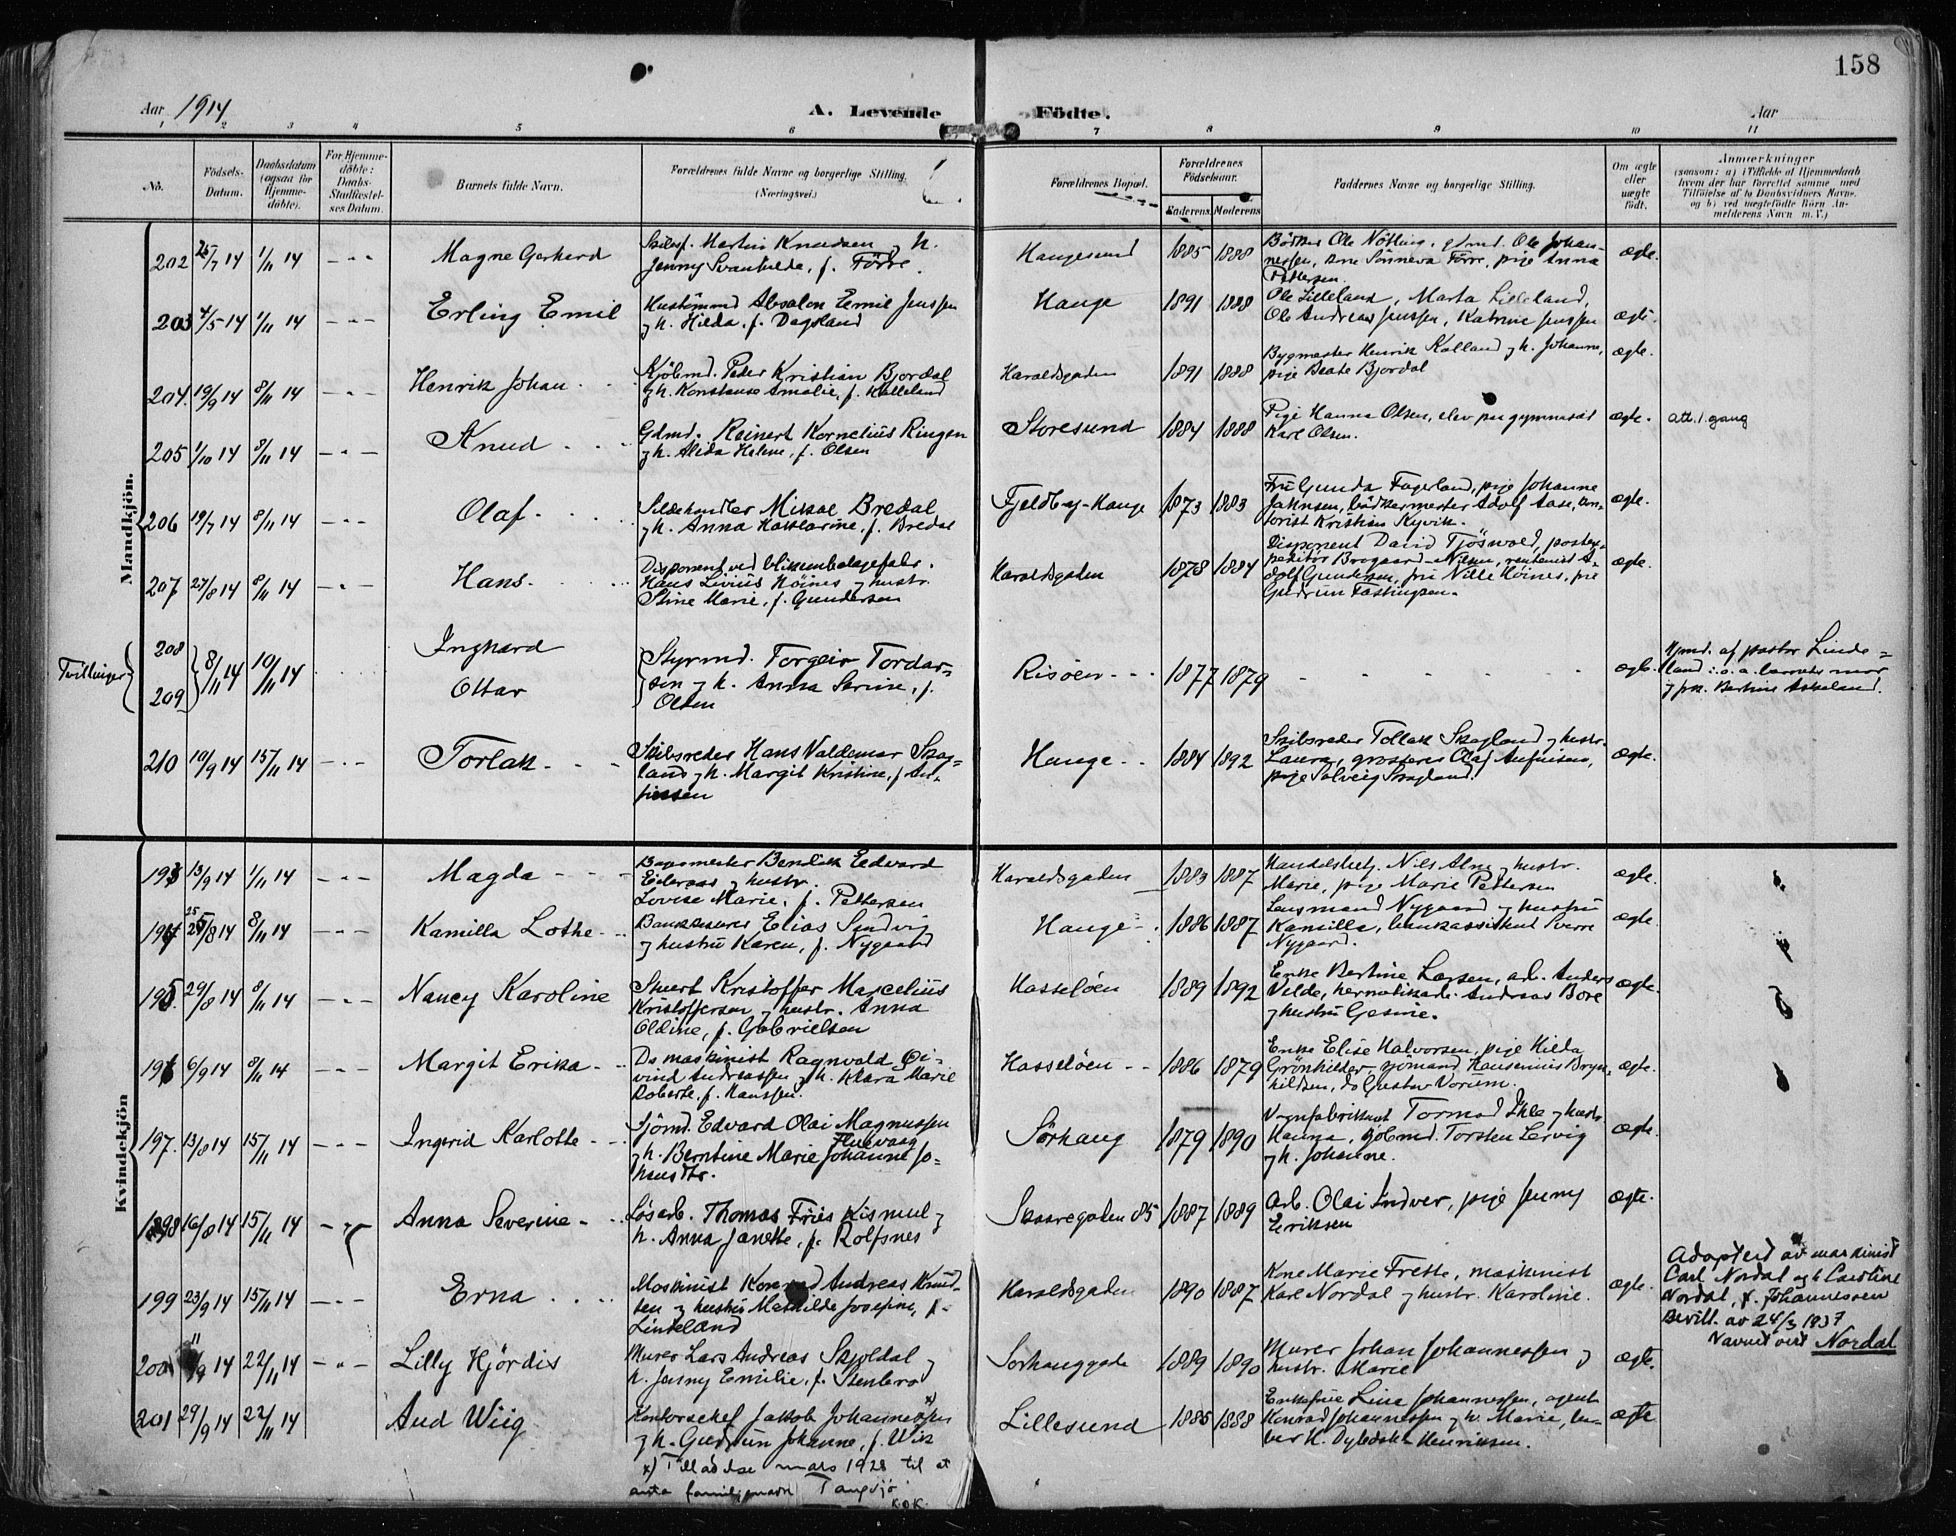 158
Aar 1914
A. Levende Födte.
Aar
1 2 3 4 5 6 7 8 9 10 11
No.
Födsels-Datum.
Daabsdatum (ogsaa for Hjemme-döbte).
For Hjemme-döbte: Daabs-Stadfæstel-ses Datum.
Barnets fulde Navn.
Forældrenes fulde Navne og borgerlige Stilling. (Næringsvei.)
Forældrenes Bopæl.
Forældrenes Födselsaar.
Faderens. Moderens.
Faddernes Navne og borgerlige Stilling.
Om ægte eller uægte födt.
Anmærkninger
(saasom: a) i Tilfælde af Hjemmedaab
hvem der har forrettet samme, med
Tilföielse af to Daabsvidners Navne,
og b) ved uægtefödte Börn An-
melderens Navn m. V.)
Mandkjön.
202 25/7 14 1/11 14 Magne Gerhard
Martin Knudsen og h.
Jenny Svanhilde, f. Förre.
Haugesund 1885 1888
Bödker Ole Nötting, gdmd. Ole Johan-
nessen, kone Sönneva Förre, pige Anna
Pettersen.
ægte.
203 4/5 14 1/11 14 Erling Emil
Absalon Emil Jenssen
og h. Hilda, f. Dagsland
Hauge 1891 1888
Ole Lilleland, Marta Lilleland,
Ole Andreas Jenssen, Katrine Jenssen
ægte.
204. 19/9 14 8/11 14 Henrik Johan
Kjöbmd. Peder Kristian Bjordal
og h. Konstanse Amalie, f. Kalleland
Haraldsgaden 1891 1888
Bygmester Henrik Kalland og h. Johanne,
pige Beate Bjordal
ægte.
205 1/10 14 8/11 14 Knud
Gdmd. Reinert Kornelius Ringen
og h. Alida Helene, f. Olsen
Storesund 1884 1888
Pige Hanna Olsen, elev paa gymnasiet
Karl Olsen.
ægte.
att. 1. gang
206 19/7 14 8/11 14 Olaf
Sildehandler Mikal Bredal
og h. Anna Katarine, f. Bredal
Fjeldby-Hauge 1873 1883
Fru Gunda Fagerland, pige Johanne
Jahnsen, bödkermester Adolf Aase, kon-
torist Kristian Kyvik.
ægte.
207 27/8 14 8/11 14 Hans
Disponent ved blikemballagefabr.
Hans Livius Höines og hustr.
Stine Marie, f. Gundersen
Haraldsgaden 1878 1884
Disponent David Tjösvold, postex-
peditör Brogaard-Nilsen, rentenist A-
dolf Gundersen, fru Nille Höines, frk
Gudrun Fastingsen.
ægte.
Tvillinger
208 Inghard
209 Ottar
8/11 14 10/11 14
Styrmd. Torgeir Tordar-
sen og h. Anna Serine, f.
Olsen
Risöen 1877 1879
ægte.
Hjmd. af pastor Linde-
land i. o. a. barnets mor
og frk. Bertine Askeland.
210 10/9 14 15/11 14 Torlak
Skibsreder Hans Valdemar Skog-
land og h. Margit Kristine, f. An-
finsen
Hauge 1884 1892
Skibsreder Tollak Skogland og hustr.
Laura, grosserer Olaf Anfinsen,
pige Solveig Skogland.
ægte.
Kvindekjön
193 13/9 14 1/11 14 Magda
Bendik Edvard
Eideraas og hustr.
Lovise Marie, f. Pettersen
Haraldsgaden 1883 1887
Handelsbetj. Nils Alne og hustr.
Marie, pige Marie Pettersen
ægte.
194 25/8 14 8/11 14 Kamilla Lothe
Bankkaserer Elias Sundvig
og hustru Karen, f. Nygaard
Hauge 1886 1887
Lensmand Nygaard og hustru
Kamilla, bankassistent Sverre
Nygaard.
ægte.
195. 29/8 14 8/11 14 Nancy Karoline
Stuert Kristoffer Marcelius
Kristoffersen og hustr. Anna
Oldine, f. Gabrielsen
Hasselöen 1889 1892
Enke Bertine Larsen, arb. Anders
Velde, hermetikarb. Andreas Bore
og hustru Gesine.
ægte.
196 6/9 14 8/11 14 Margit Erika
Ds maskinist Ragnvald Öi-
vind Andreassen og h. Klara Marie
Roberte, f. Hanssen.
Hasselöen 1886 1879
Enke Elise Halvorsen, pige Hilda
Grönhilder, sjömand Hansenius Bryn-
hildsen, do Gustav Vorum.
ægte.
197. 13/8 14 15/11 14 Ingerid Karlotte
Sjömd. Edvard Olai Magnussen
Huevaag
og h. Berntine Marie Johanne Jo-
hansdtr.
Sörhaug 1879 1890
Vognfabrikant Tormod Ihle og hustr
Hanna, kjöbmd. Torsten Lervig
og h. Johanne.
ægte.
198 16/8 14 15/11 14 Anna Severine
Lösarb. Thomas Friis Kismul og
h. Anna Janette, f. Rolfsnes
Skaaregaden 85 1887 1889
Arb. Olai Indver, pige Jenny
Eriksen
ægte.
199 23/9 14 15/11 14 Erna
Maskinist Konrad Andreas Knud-
sen og hustru Mathilde Josefine, f.
Lindeland
Haraldsgaden 1890 1887
Kone Marie Frette, maskinist
Karl Nordal og hustr. Karoline.
ægte.
Adopteret av maskinist
Carl Nordal og h. Caroline
Nordal, f. Johannessen
Bevill. av 24/3 1937
Navnet vert Nordal
200 11/9 14 22/11 14 Lilly Hjördis
Murer Lars Andreas Skjoldal og
h. Jenny Emilie, f. Stenbro
Sorhauggade 1889 1890
Murer Johan Johannessen og
hustr. Marie
ægte.
201 29/9 14 22/11 14 Aud Wiig
Kontorschef Jakob Johannessen x)
og h. Gudrun Johanne, f. Wiik
Lillesund 1885 1888
Enkefrue Lina Johannessen, agent
Konrad Johannessen og h. Marie,
Henriksen.
ægte
x) Tilladelse mars 1928 til at
anta familjenavn Tangsjö
K.O.K.